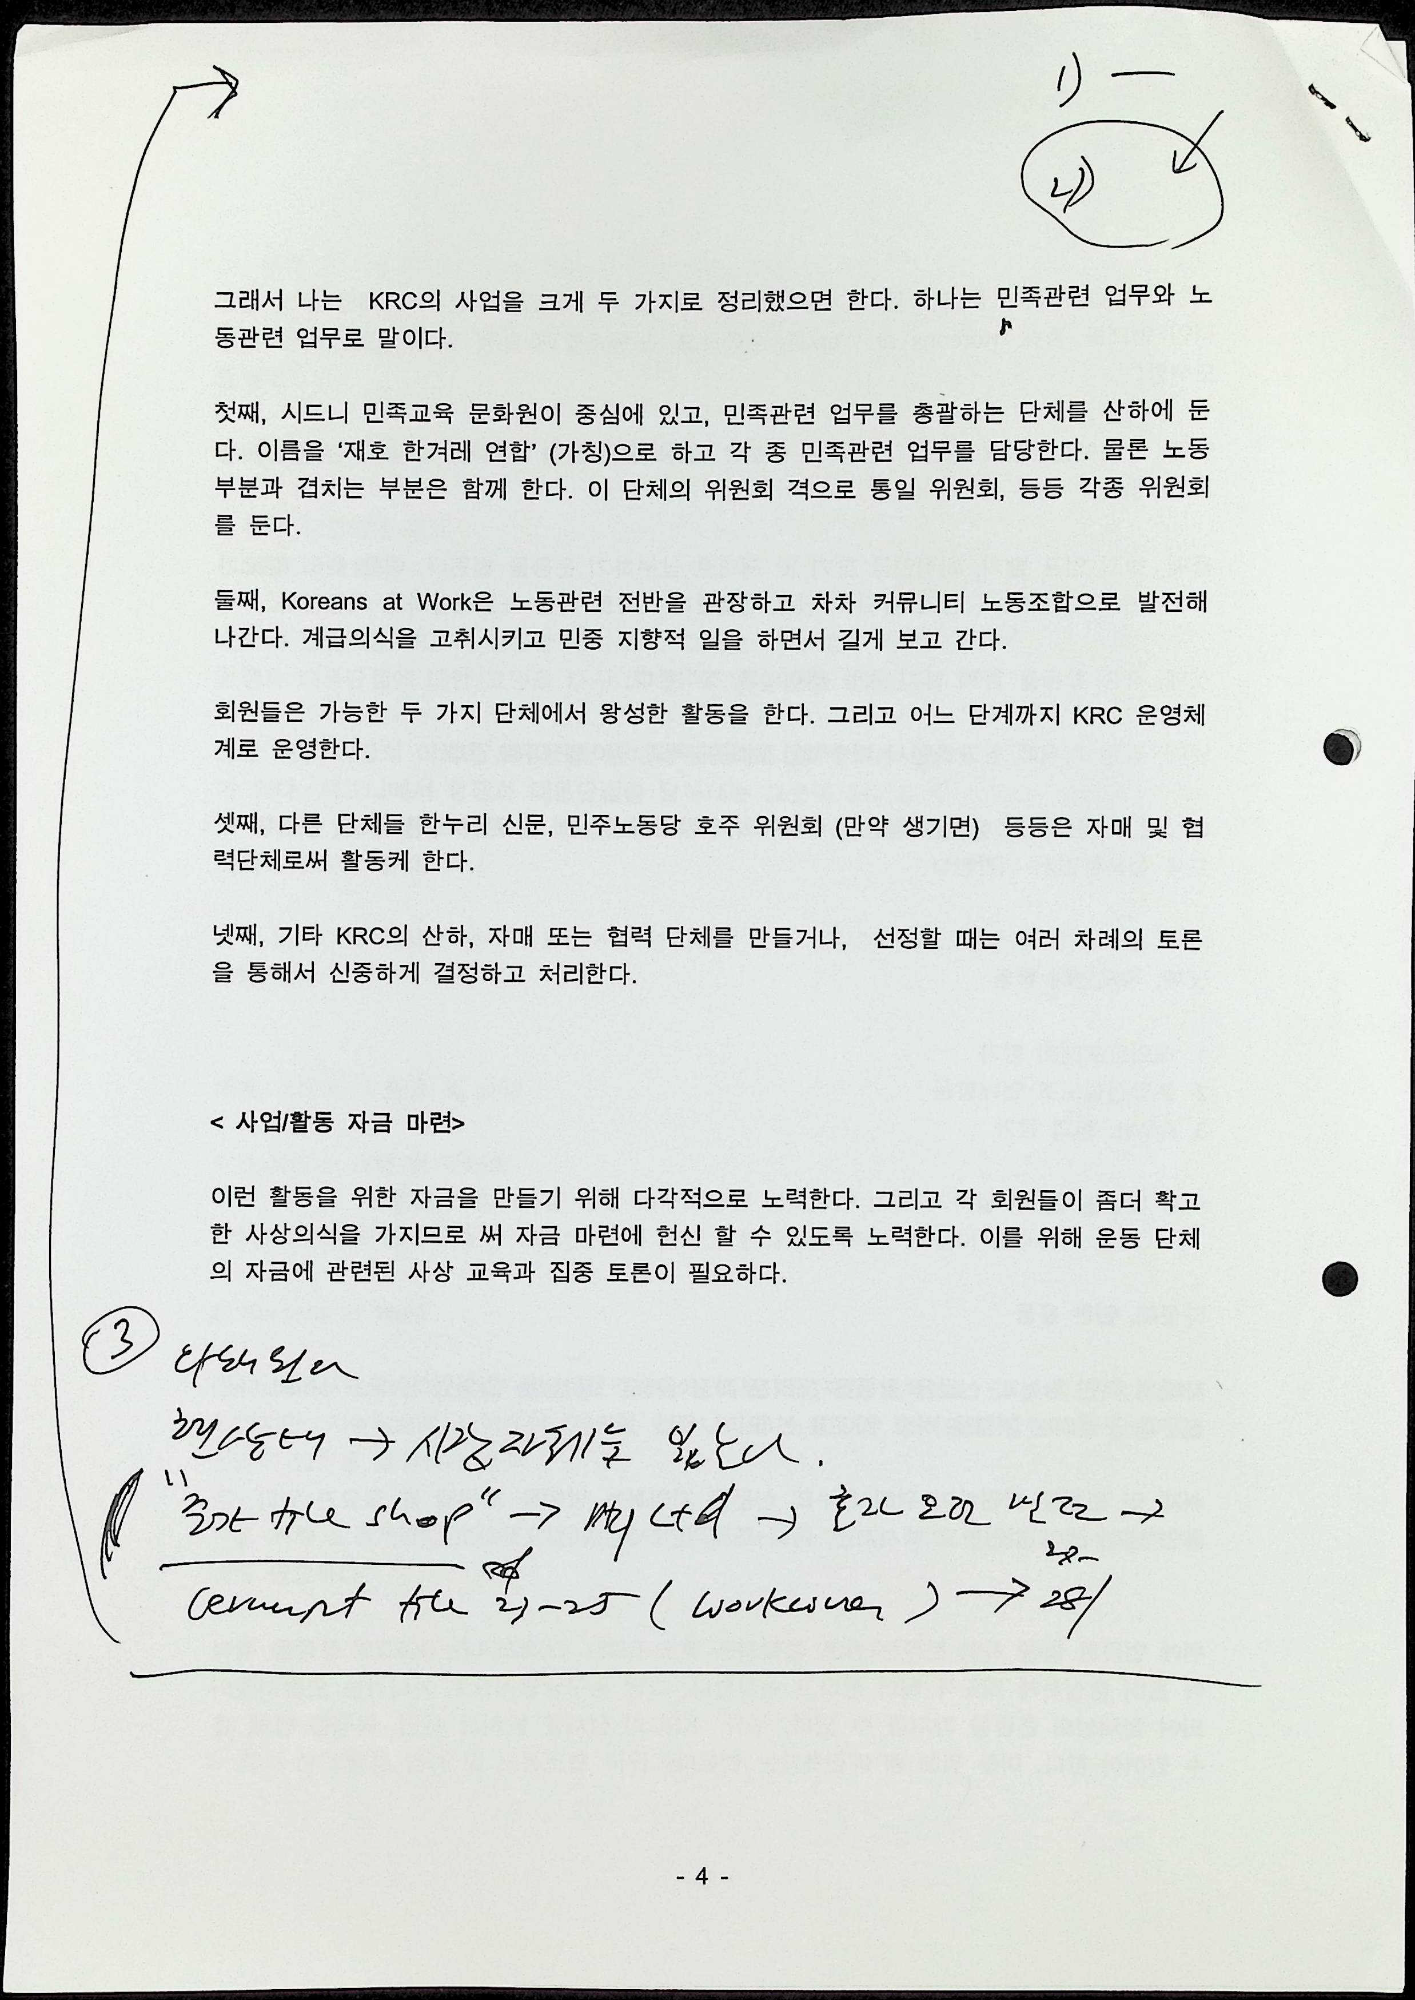 1) —
2)
그래서 나는 KRC의 사업을 크게 두 가지로 정리했으면 한다. 하나는 민족관련 업무와 노
동관련 업무로 말이다.
첫째, 시드니 민족교육 문화원이 중심에 있고, 민족관련 업무를 총괄하는 단체를 산하에 둔
다. 이름을 ‘재호 한겨레 연합’ (가칭)으로 하고 각 종 민족관련 업무를 담당한다. 물론 노동
부분과 겹치는 부분은 함께 한다. 이 단체의 위원회 격으로 통일 위원회, 등등 각종 위원회
를 둔다.
둘째, Koreans at Work은 노동관련 전반을 관장하고 차차 커뮤니티 노동조합으로 발전해
나간다. 계급의식을 고취시키고 민중 지향적 일을 하면서 길게 보고 간다.
회원들은 가능한 두 가지 단체에서 왕성한 활동을 한다. 그리고 어느 단계까지 KRC 운영체
계로 운영한다.
셋째, 다른 단체들 한누리 신문, 민주노동당 호주 위원회 (만약 생기면) 등등은 자매 및 협
력단체로써 활동케 한다.
넷째, 기타 KRC의 산하, 자매 또는 협력 단체를 만들거나, 선정할 때는 여러 차례의 토론
을 통해서 신중하게 결정하고 처리한다.
< 사업/활동 자금 마련>
이런 활동을 위한 자금을 만들기 위해 다각적으로 노력한다. 그리고 각 회원들이 좀더 확고
한 사상의식을 가지므로 써 자금 마련에 헌신 할 수 있도록 노력한다. 이를 위해 운동 단체
의 자금에 관련된 사상 교육과 집중 토론이 필요하다.
3
현상태 → 시장자체는 없는다.
tile shop" → →
tile 25 ( workcover ) → 28/
- 4 -